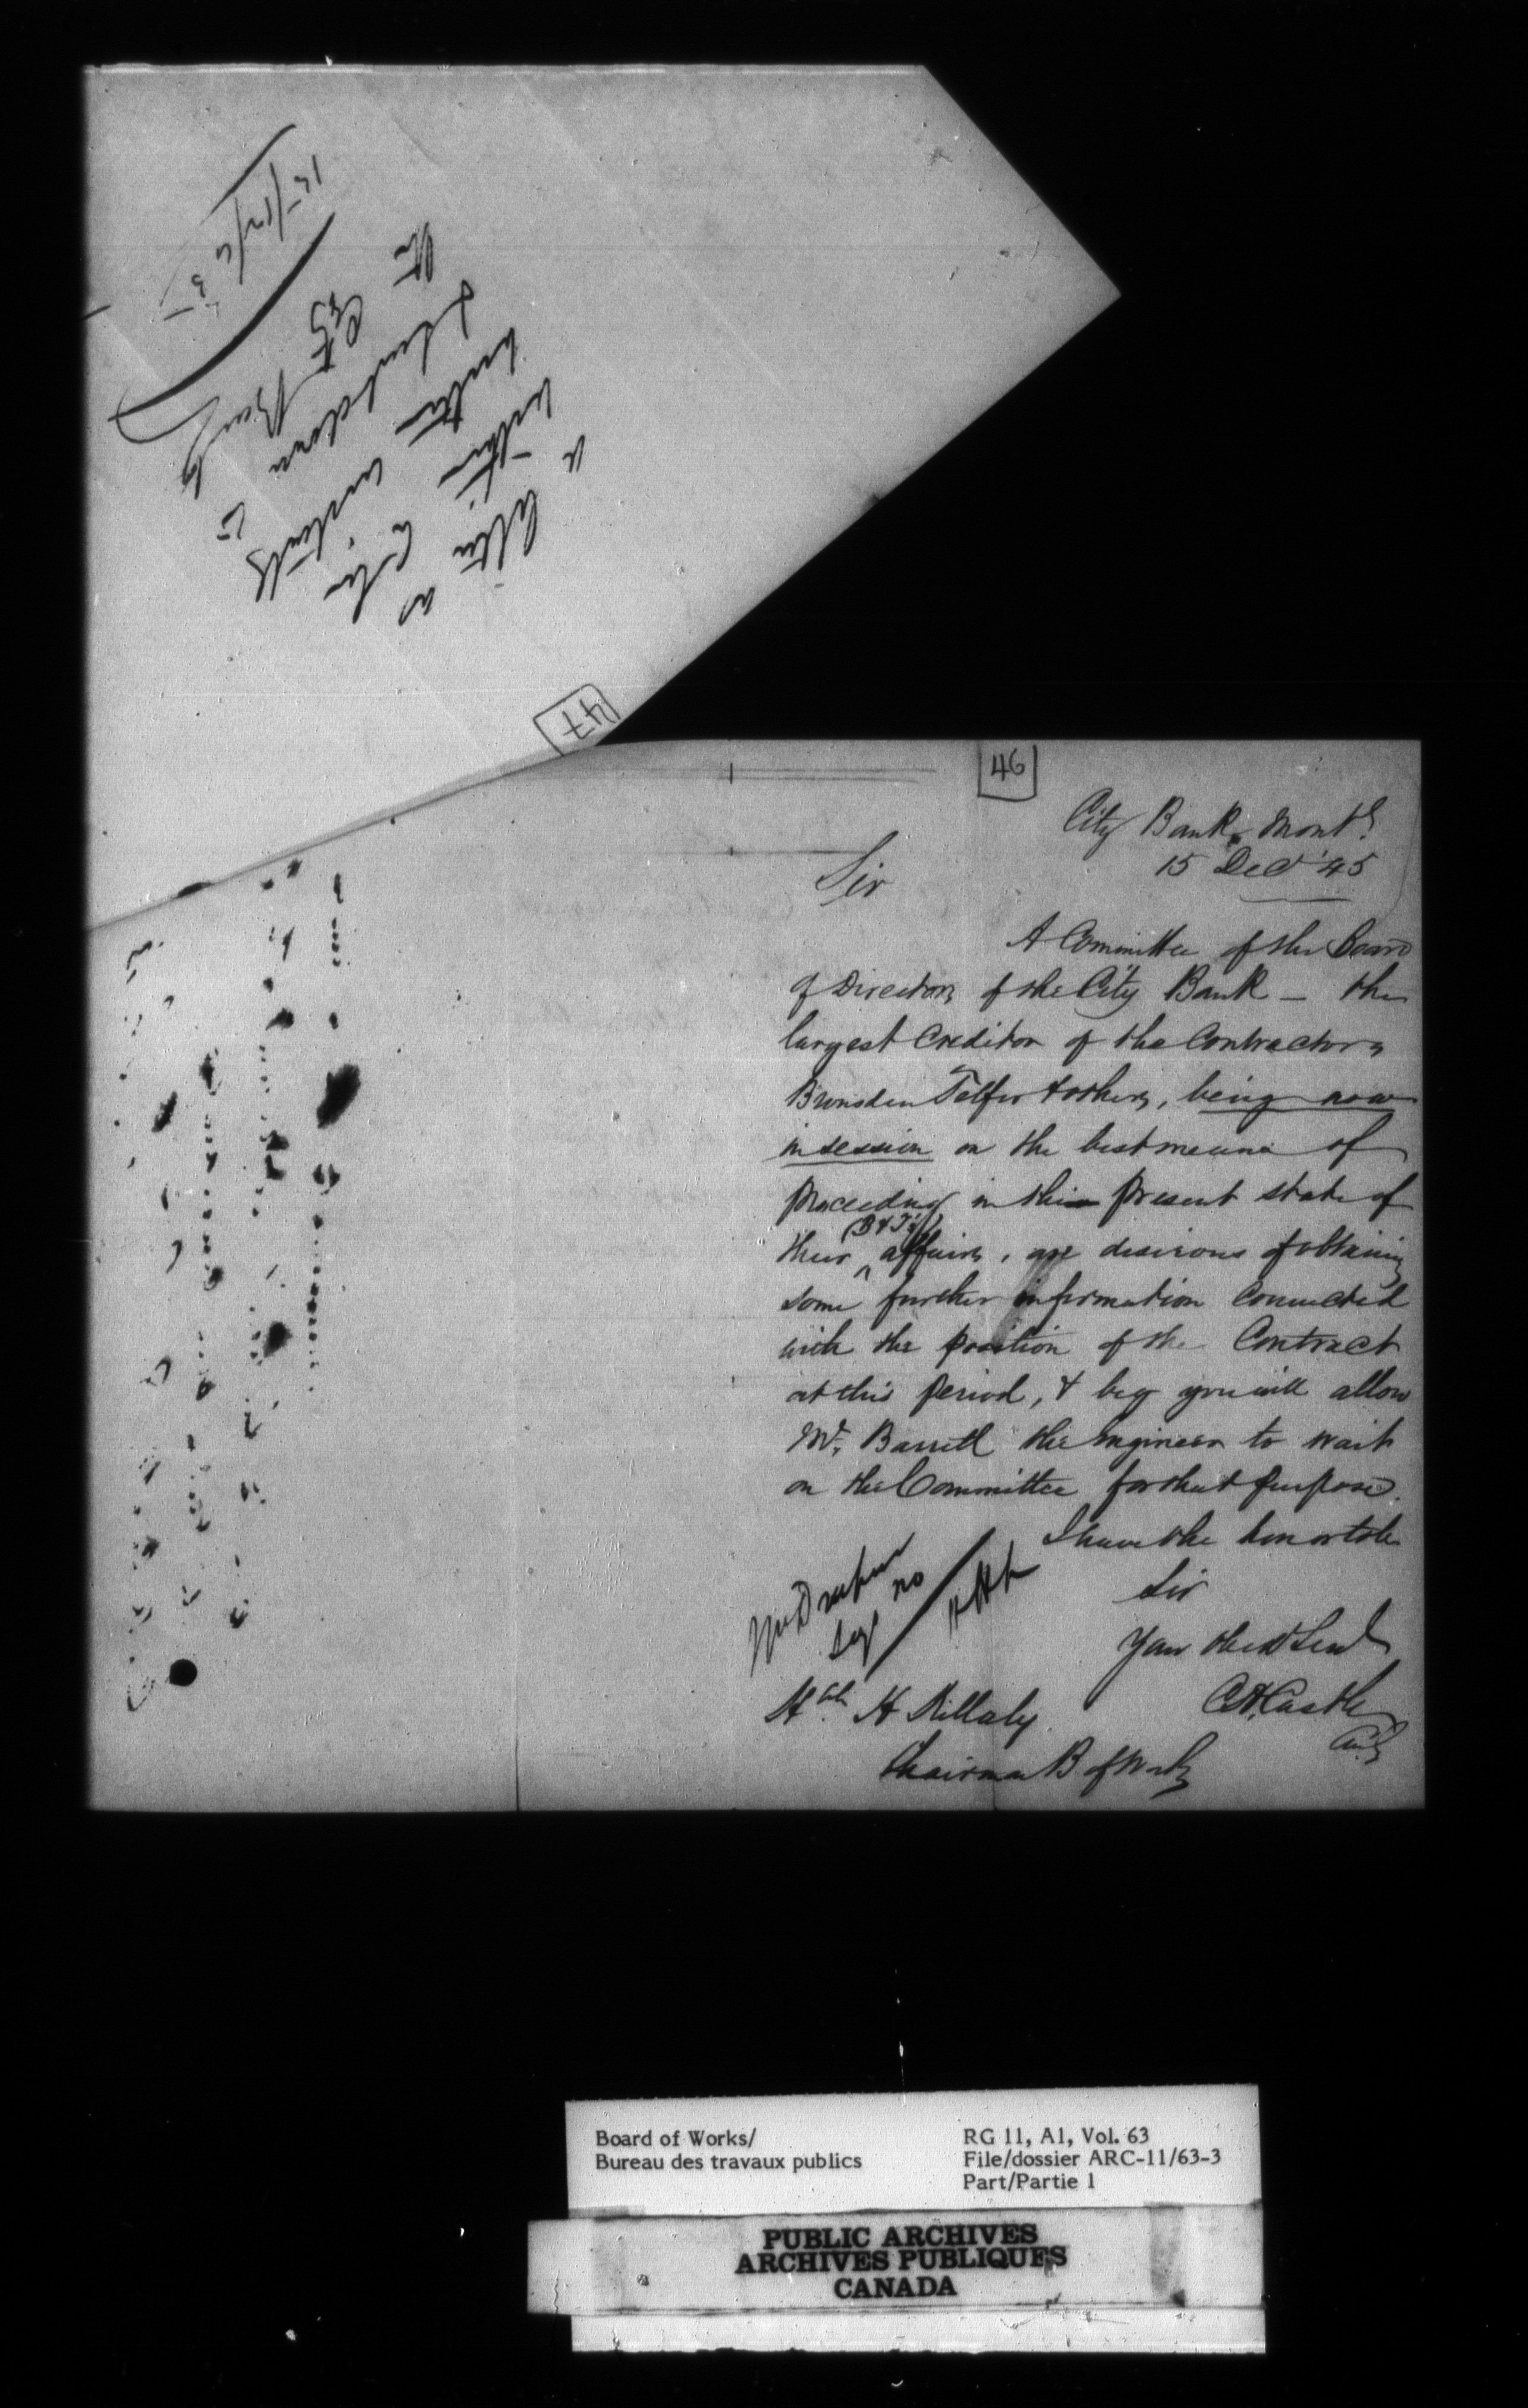 47
46
City Bank, Montl
15 Decr '45
Sir
A Committee of the Board
of Directors of the City Bank – the
largest Creditor of the Contractors
Brunsden Telfer & others, being now
in session on the best means of
proceeding in this present state of
(B & T's)
their affairs, are desirous of obtaining
some further information connected
with the position of the Contract
at this period, & beg you will allow
Mr. Barrett the Engineer to wait
on the Committee for that purpose.
I have the honor to be
Sir
Your Obedt Servt
C H Castle
Mr Draper
says no
HHK
Hble H Killaly
Chairman B of Works
Board of Works/
Bureau des travaux publics
RG 11, A1, Vol. 63
File/dossier ARC-11/63-3
Part/Partie 1
PUBLIC ARCHIVES
ARCHIVES PUBLIQUES
CANADA